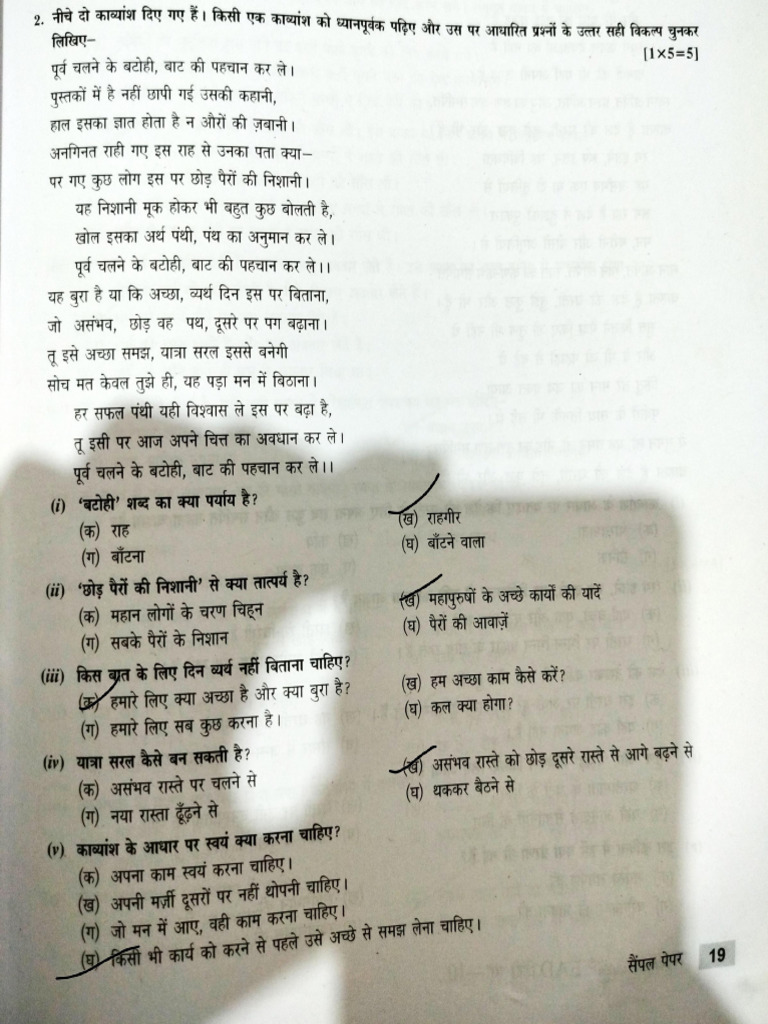 2. नीचे दो काव्यांश दिए गए हैं। किसी एक काव्यांश को ध्यानपूर्वक पढ़िए और उस पर आधारित प्रश्नों के उत्तर सही विकल्प चुनकर
लिखिए– [1×5=5]
पूर्व चलने के बटोही, बाट की पहचान कर ले।
पुस्तकों में है नहीं छापी गई उसकी कहानी,
हाल इसका ज्ञात होता है न औरों की ज़बानी।
अनगिनत राही गए इस राह से उनका पता क्या–
पर गए कुछ लोग इस पर छोड़ पैरों की निशानी।
यह निशानी मूक होकर भी बहुत कुछ बोलती है,
खोल इसका अर्थ पंथी, पंथ का अनुमान कर ले।
पूर्व चलने के बटोही, बाट की पहचान कर ले।।
यह बुरा है या कि अच्छा, व्यर्थ दिन इस पर बिताना,
जो असंभव, छोड़ वह पथ, दूसरे पर पग बढ़ाना।
तू इसे अच्छा समझ, यात्रा सरल इससे बनेगी
सोच मत केवल तुझे ही, यह पड़ा मन में बिठाना।
हर सफल पंथी यही विश्वास ले इस पर बढ़ा है,
तू इसी पर आज अपने चित्त का अवधान कर ले।
पूर्व चलने के बटोही, बाट की पहचान कर ले।।
(i) 'बटोही' शब्द का क्या पर्याय है?
(क) राह (ख) राहगीर
(ग) बाँटना (घ) बाँटने वाला
(ii) 'छोड़ पैरों की निशानी' से क्या तात्पर्य है?
(क) महान लोगों के चरण चिह्न (ख) महापुरुषों के अच्छे कार्यों की यादें
(ग) सबके पैरों के निशान (घ) पैरों की आवाज़ें
(iii) किस बात के लिए दिन व्यर्थ नहीं बिताना चाहिए?
(क) हमारे लिए क्या अच्छा है और क्या बुरा है? (ख) हम अच्छा काम कैसे करें?
(ग) हमारे लिए सब कुछ करना है। (घ) कल क्या होगा?
(iv) यात्रा सरल कैसे बन सकती है?
(क) असंभव रास्ते पर चलने से (ख) असंभव रास्ते को छोड़ दूसरे रास्ते से आगे बढ़ने से
(ग) नया रास्ता ढूँढ़ने से (घ) थककर बैठने से
(v) काव्यांश के आधार पर स्वयं क्या करना चाहिए?
(क) अपना काम स्वयं करना चाहिए।
(ख) अपनी मर्ज़ी दूसरों पर नहीं थोपनी चाहिए।
(ग) जो मन में आए, वही काम करना चाहिए।
(घ) किसी भी कार्य को करने से पहले उसे अच्छे से समझ लेना चाहिए।
सैंपल पेपर 19